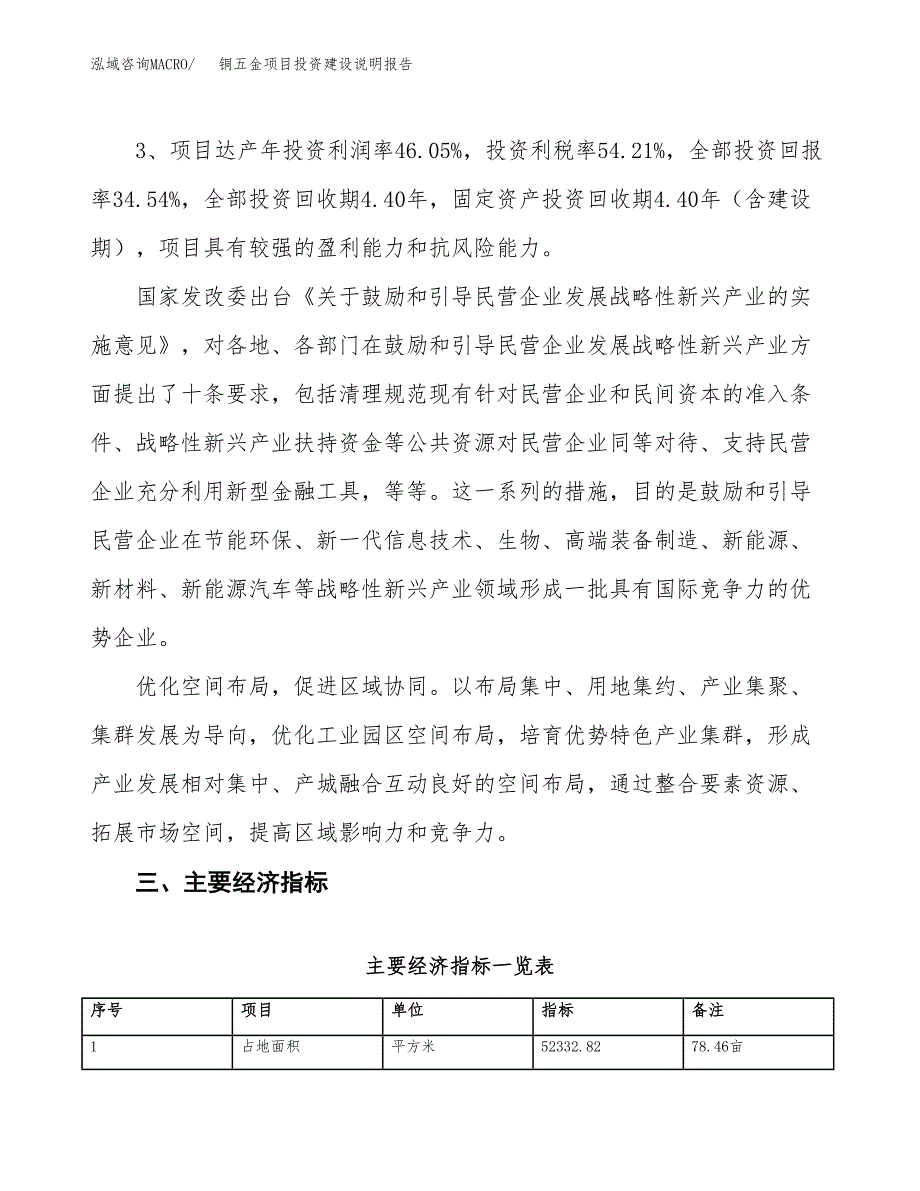 泓域咨询MACRO/ 铜五金项目投资建设说明报告
3、项目达产年投资利润率46.05%，投资利税率54.21%，全部投资回报
率34.54%，全部投资回收期4.40年，固定资产投资回收期4.40年（含建设
期），项目具有较强的盈利能力和抗风险能力。
国家发改委出台《关于鼓励和引导民营企业发展战略性新兴产业的实
施意见》，对各地、各部门在鼓励和引导民营企业发展战略性新兴产业方
面提出了十条要求，包括清理规范现有针对民营企业和民间资本的准入条
件、战略性新兴产业扶持资金等公共资源对民营企业同等对待、支持民营
企业充分利用新型金融工具，等等。这一系列的措施，目的是鼓励和引导
民营企业在节能环保、新一代信息技术、生物、高端装备制造、新能源、
新材料、新能源汽车等战略性新兴产业领域形成一批具有国际竞争力的优
势企业。
优化空间布局，促进区域协同。以布局集中、用地集约、产业集聚、
集群发展为导向，优化工业园区空间布局，培育优势特色产业集群，形成
产业发展相对集中、产城融合互动良好的空间布局，通过整合要素资源、
拓展市场空间，提高区域影响力和竞争力。
三、主要经济指标
主要经济指标一览表
序号 项目 单位 指标 备注
1 占地面积 平方米 52332.82 78.46亩